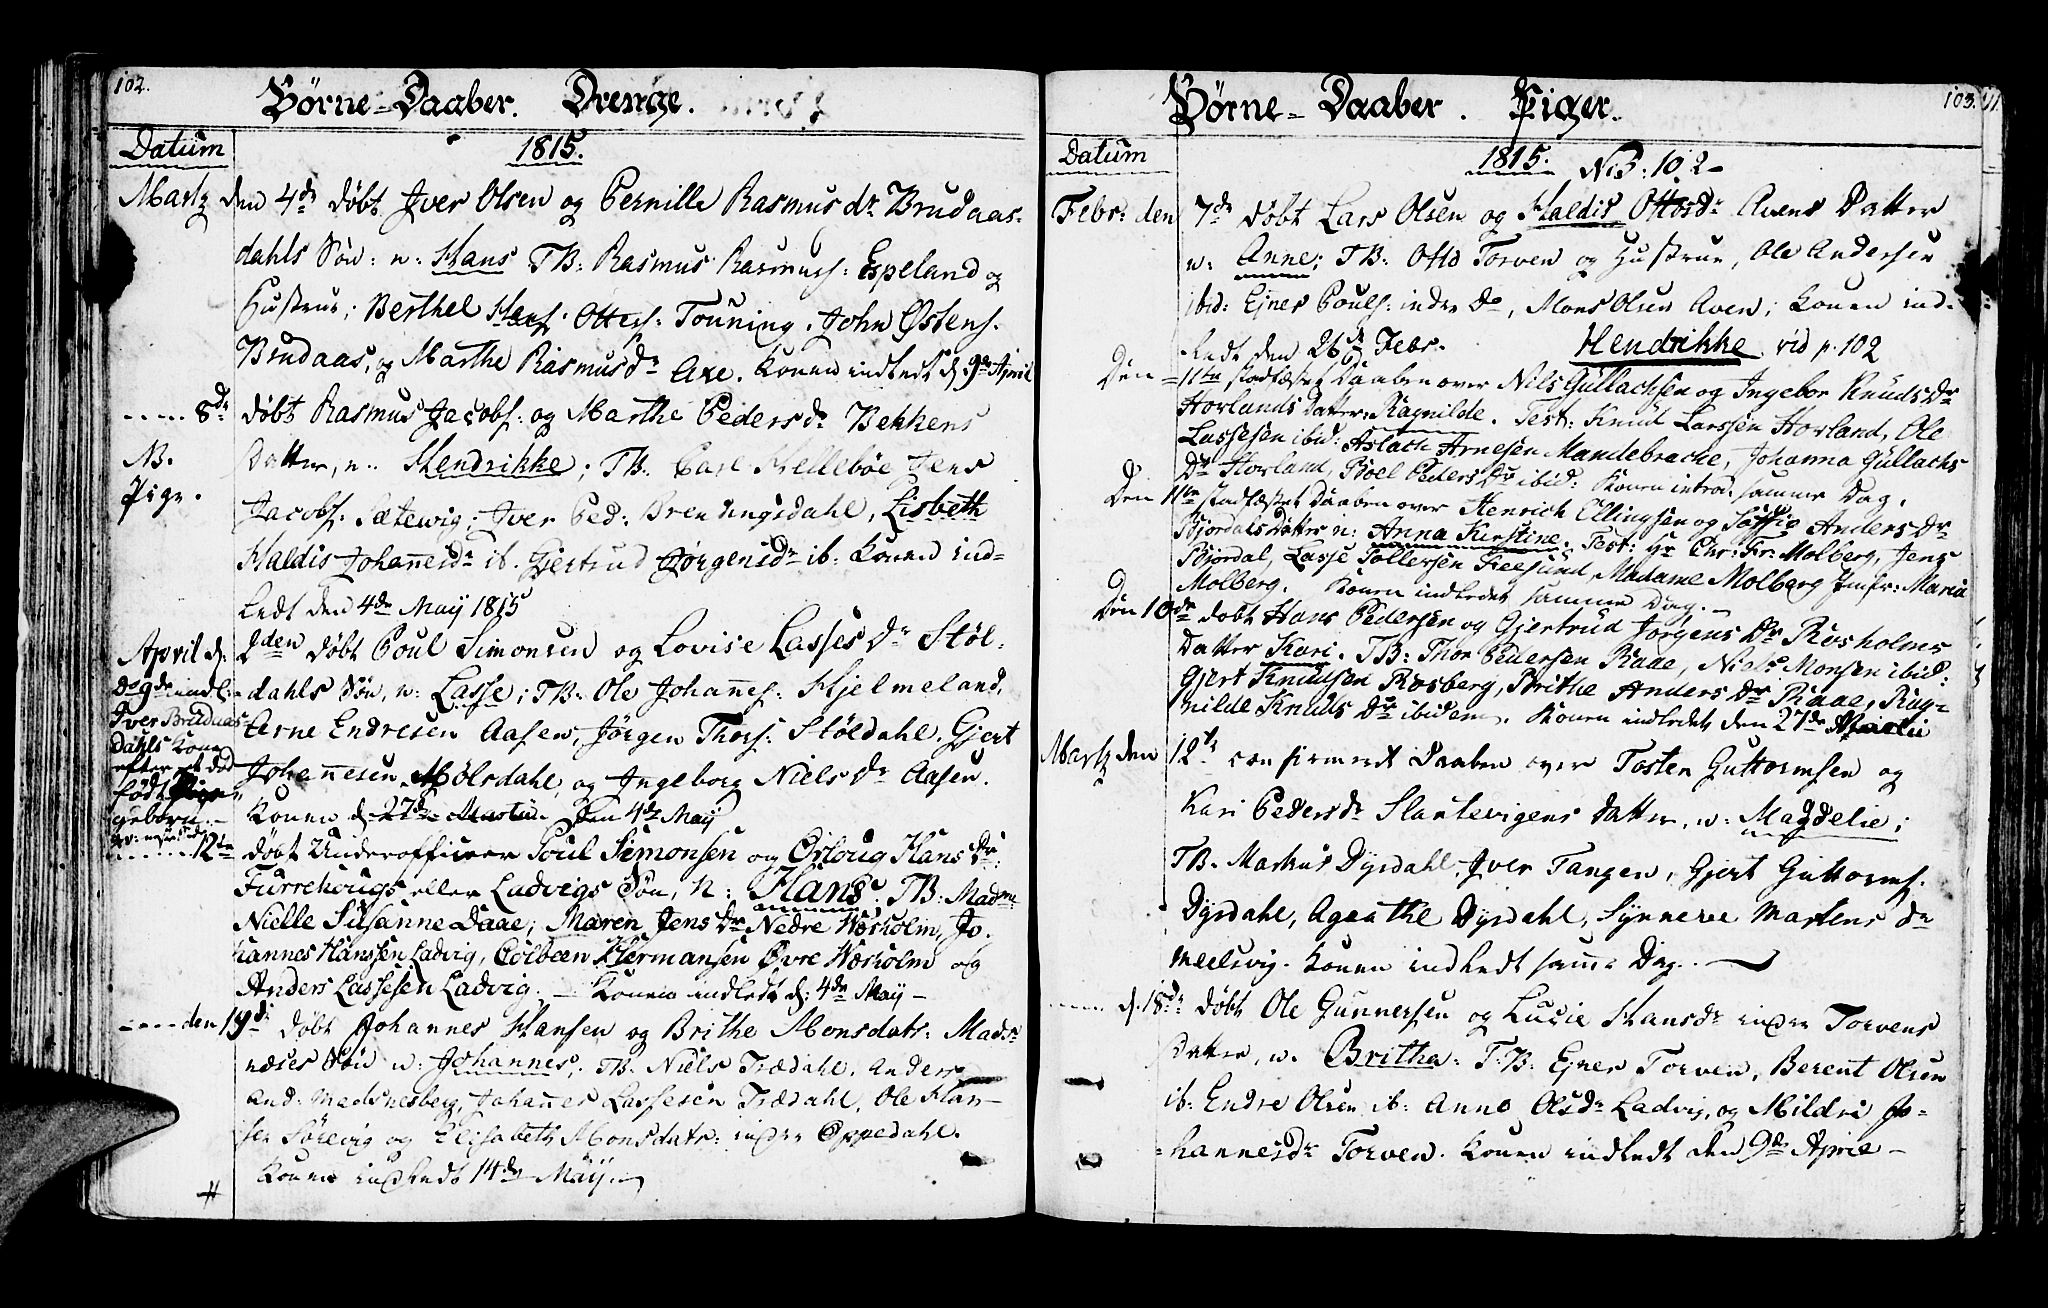 102.
Börne-Daaber. Drenge.
Datum
1815.
Martz den 4de döbt Jver Olsen og Pernille Rasmusdr Brudaas-
dahls Sön: n: Hans TB: Rasmus Rasmuss: Espeland og
Hustrue; Berthel Hans: Otters: Touning, John Östens.
Brudaas, og Marthe Rasmusdr Axe. Konen indledt d 9de April
----- 8de döbt Rasmus Jacobs: og Marthe Pedersdr Bekkens
NB. Datter, n. Hendrikke; TB. Carl Hellebøe Jens
Pige. Jacobs. Sætewig; Jver Ped: Brendingsdahl, Lisbeth
Haldis Johannesdr ib. Gjertrud Jørgensdr ib: Konen ind-
ledt den 4de May 1815
April d. 2den döbt Poul Simonsen og Lovise Lasses Dr Stöl-
dahls Sön, n: Lasse; TB. Ole Johannes: Hjelmeland,
Arne Endresen Aasen, Jörgen Thors: Stöldahl, Gjert
Johannesen Mölsdahl, og Jngeborg Niels dr Aasen.
Konen d 27de Martii den 4de May
Do 9de indl:
Jver Brudaas-
dahls Kone
efter et död
född
----- 12te döbt Underofficeer Poul Simonsen og Orloug Hans Dr
Furrehougs eller Ladvigs Sön, n: Hans, TB: Madme
Nielle Susanne Daae; Maren Jens Dr Nedre Wæsholm, Jo-
hannes Hanssen Ladvig, Colbeen Hermansen Øvre Wæsholm og
Anders Lassesen Ladvig. — Konen indledt d: 4de May —
---- den 19de döbt Johannes Hansen og Brithe Monsdatr: Mads-
næses Sön n: Johannes; TB. Niels Trædahl, Anders
And: Madsnesberg, Johannes Lassesen Trædahl, Ole Han-
sen Sörevig og Elisabeth Monsdatr: indre Oppedahl.
Konen indledt 14de May.
103.
Börne-Daaber. Piger.
Datum
1815. NB: 102-
Febr: den 7de döbt Lars Olsen og Haldis Ottosdr Avens Datter
n: Anne; TB: Otto Torven og Hustrue, Ole Andersen
ibid: Ejner Pouls: indre Do, Mons Olsen Aven; Konen ind-
ledt den 26de Febr. Hendrikke vid p. 102
Den 11te stadfæstet Daaben over Nils Gullachsen og Ingebor Knuds Dr
Horlands Datter: Ragnilde. Test: Knud Larssen Horland, Ole
Lassesen ibid: Aslach Arnesen Mandebracke, Johanna Gullachs
Dr Horland, Boel Peders Dr ibid: Konen introd: samme Dag.
Den 11te stadfæstet Daaben over Henrich Ellingsen og Söffie Anders Dr
Bjordals Datter n: Anna Kirstine. Test: Hr Chr: Fr: Molberg, Jens
Bjordal, Lasse Tollefsen Feesund, Madame Molberg Jmfr: Maria
Molberg. Konen indledet samme Dag. —
Den 10de döbt Hans Pedersen og Gjertrud Jörgens Dr Risholmes
Datter Kari. TB: Thor Pedersen Raae, Niels Monsen ibid:
Gjert Knudsen Rosberg, Brithe Anders Dr Raae, Rag-
nilde Knuds Dr ibidem. Konen indledet den 27de
Martz den 12te confirmeret Daaben over Tosten Guttormsen og
Kari Pedersdr Slantevigens Datter, n: Magdelie;
TB. Markus Dysdahl, Jver Tangen, Gjert Guttorms.
Dysdahl, Agaathe Dysdahl, Synneve Martens dr
Meelsvig. Konen indledt samme Dag. —
----- d. 18de döbt Ole Gunnersen og Lucie Hansdr indre Torvens
Datter, n. Britha: TB: Ejner Torven, Berent Olsen
ib: Endre Olsen ib: Anne Olsdr Ladvig, og Mildri Jo-
hannesdr Torven. Konen indledt den 9de April —